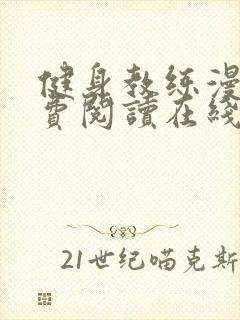 健身教练漫
费閱讀在綫
21世纪喵克斯